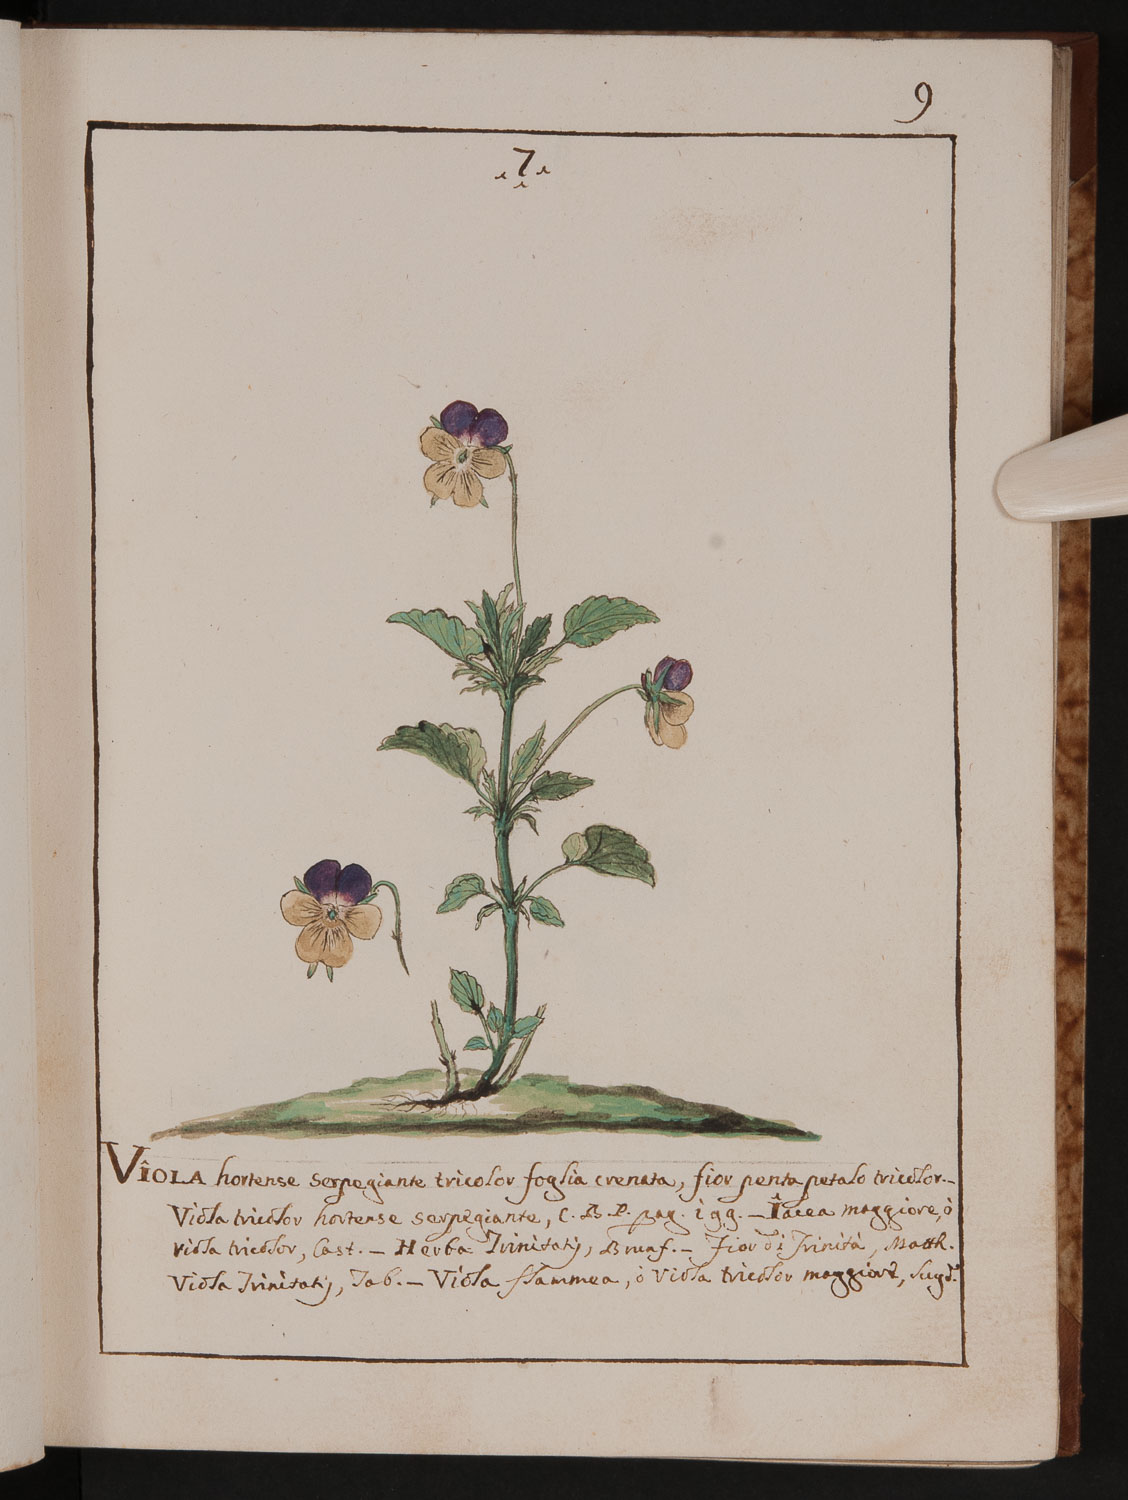 9
.7.
VIOLA hortense serpegiante tricolor foglia crenata, fior penta petalo tricolor.–
Viola tricolor hortense serpegiante, C. B. P. pag. 199. – Iacea maggiore, ò
viola tricolor, Cast. – Herba Trinitatij, Brunf. – Fior di Trinità, Matth.
Viola Trinitatij, Tab. – Viola flammea, ò viola tricolor maggiore, Lugd.